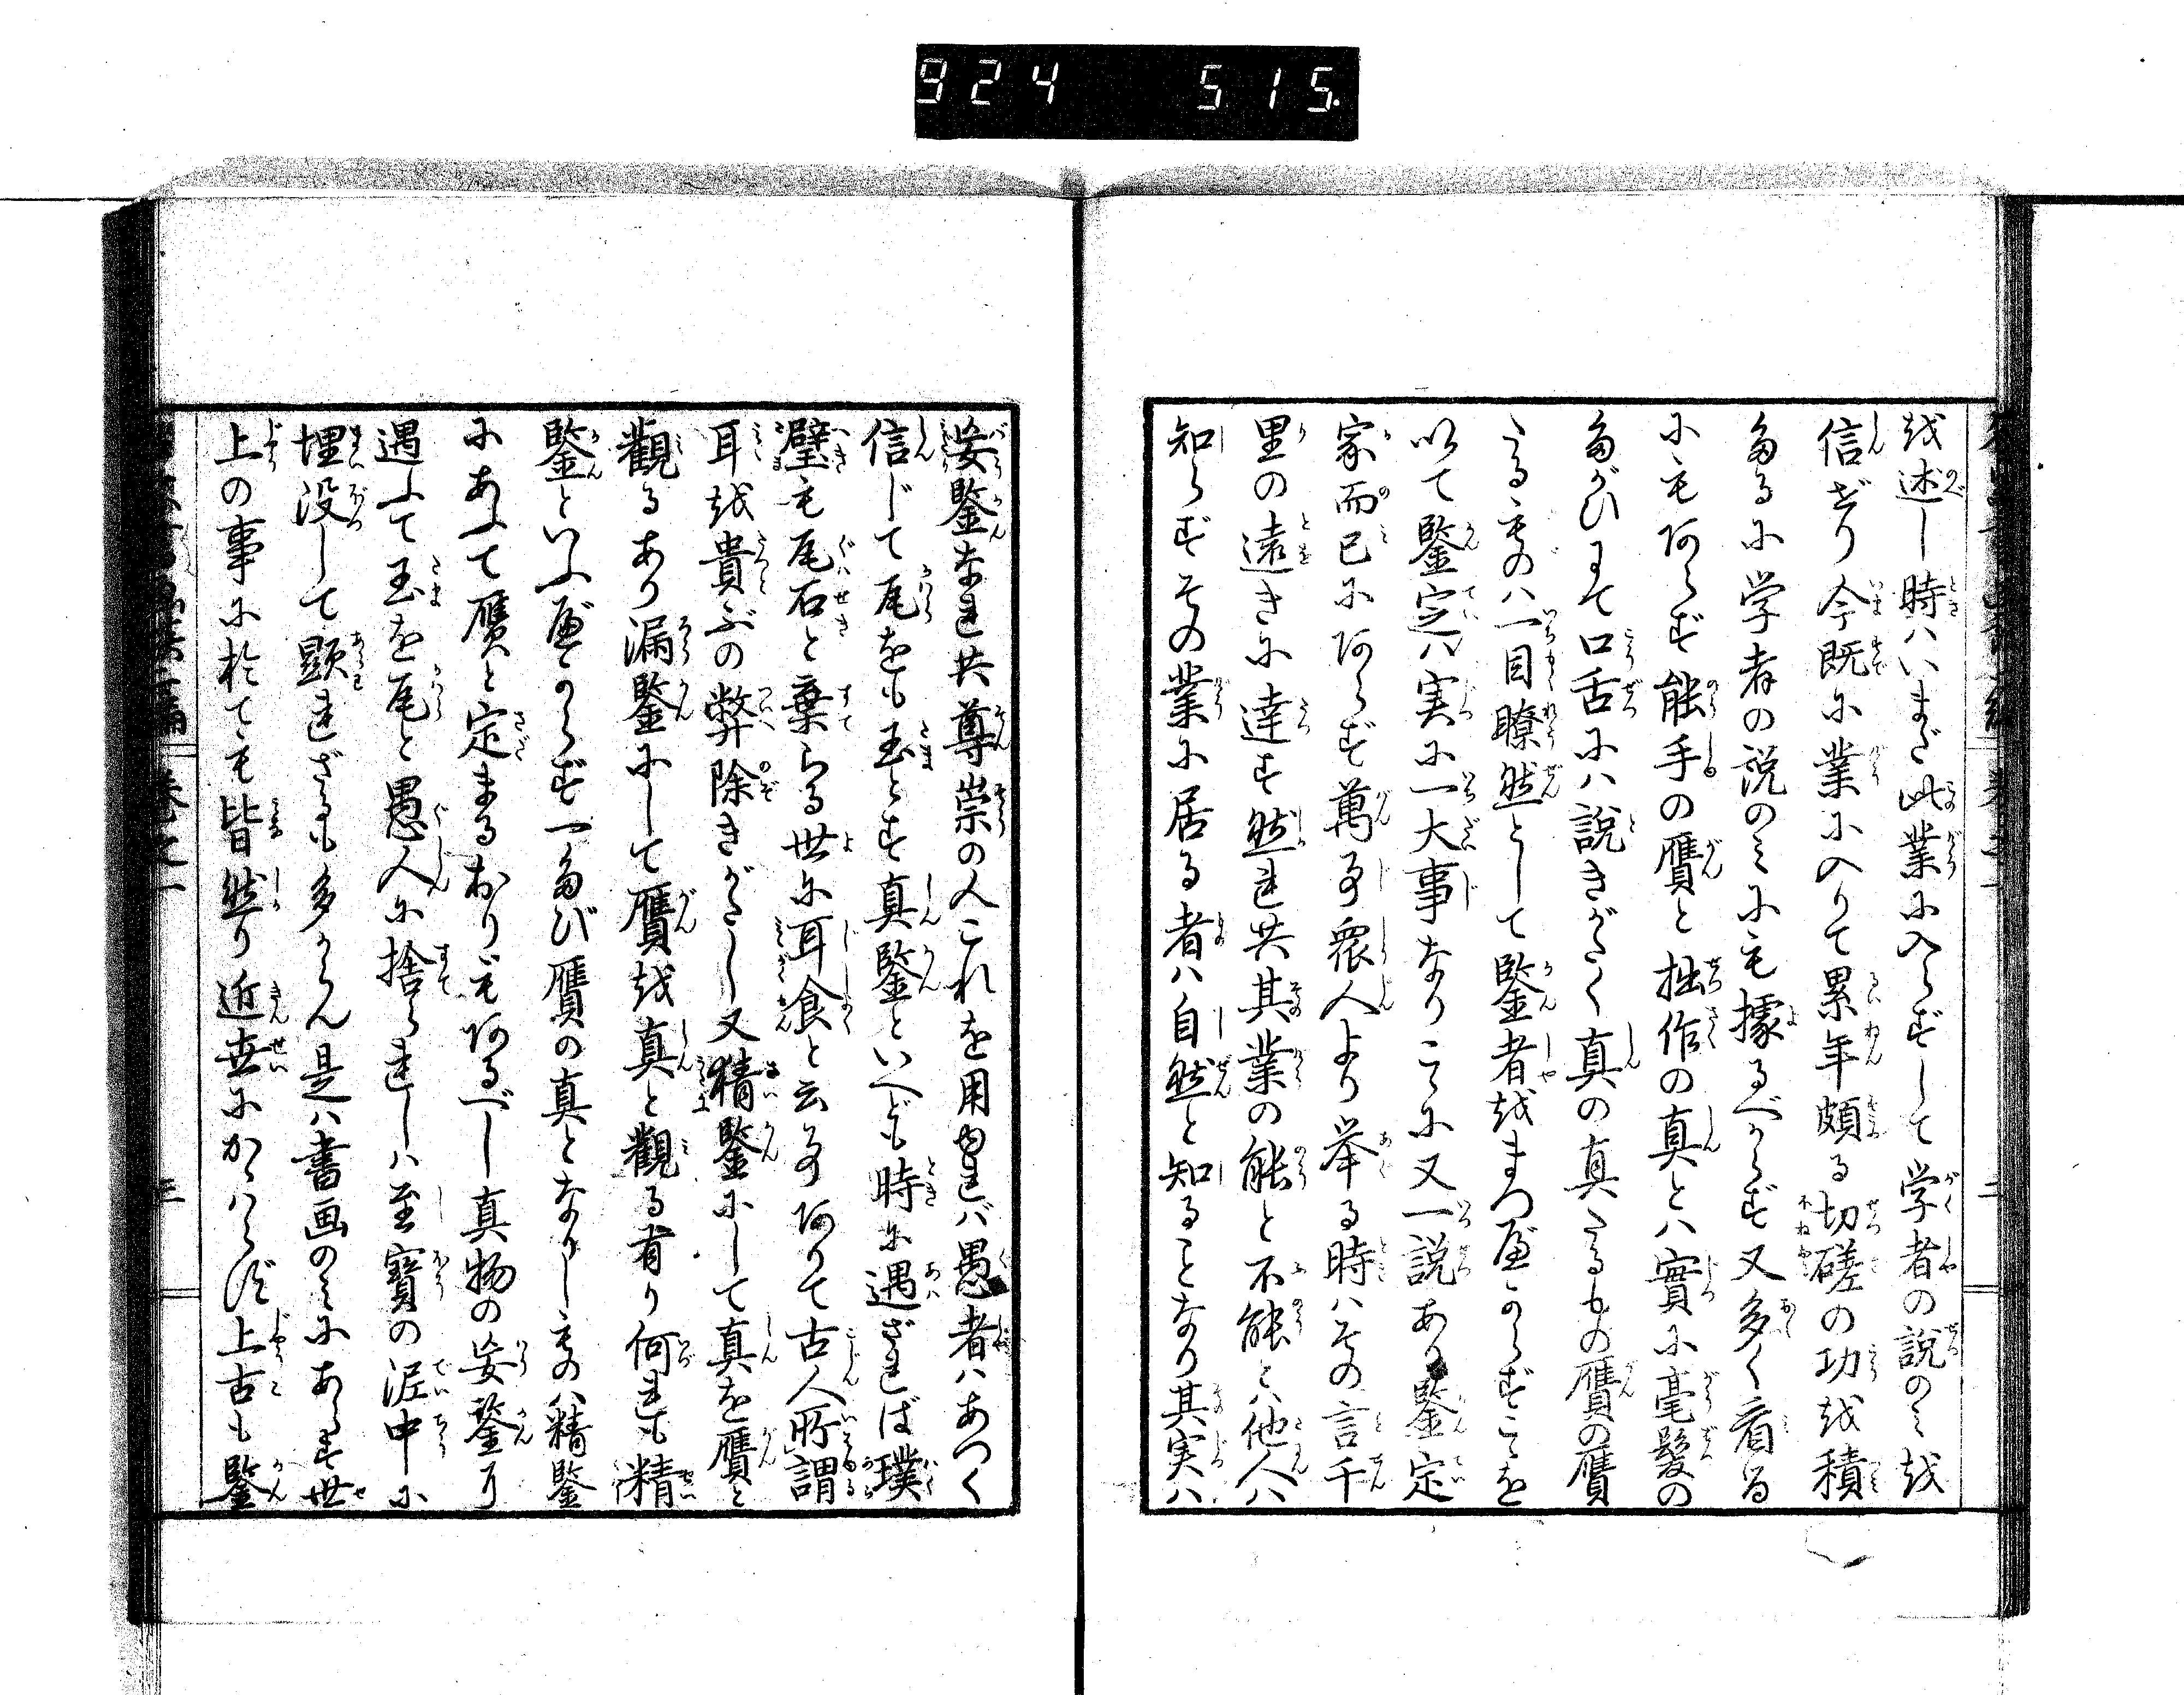 924 515.
越述し時ハいまだ此業に入らずして学者の説のミ越
信ぜり今既に業に入りて累年頗る切磋の功越積
たるに学者の説のミにも據るべからず又多く看る
にも阿らず能手の贋と拙作の真とハ實に毫髪の
たがひにて口舌にハ説きがたく真の真たるもの贋の贋
たるものハ一目瞭然として鑒者越まつべからずこゝを
以て鑒定ハ実に一大事なりこゝに又一説あり鑒定
家而已に阿らず萬事衆人より挙る時ハその言千
里の遠きに達す然れ共其業の能と不能とハ他人ハ
知らずその業に居る者ハ自然と知ることなり其実ハ
妄鑒なれ共尊崇の人これを用ゆれバ愚者ハあつく
信じて瓦をも玉とす真鑒といへども時に遇ざれば璞
璧も瓦石と棄らる世に耳食と云事阿りて古人所謂
耳越貴ぶの弊除きがたし又精鑒にして真を贋と
觀るあり漏鑒にして贋越真と觀る有り何れも精
鑒といふべからず一たび贋の真となりしものハ精鑒
にあふて贋と定まるおりも阿るべし真物の妄鑒リ
遇ふて玉を瓦と愚人に捨られしハ至寳の泥中に
埋没して顕れざるも多からん是ハ書画のミにあらず世
上の事に於ても皆然り近世にかゝハらず上古も鑒
巻之一
三